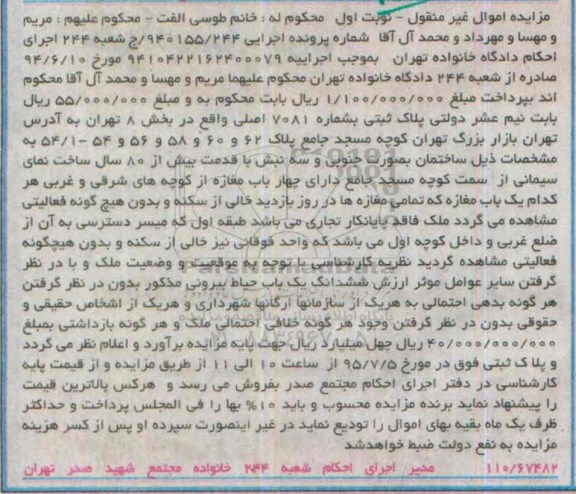 مزایده اموال غیر منقول - نوبت اول   محکوم له : خانم طوسی الفت - محکوم علیهم : مریم
و مهسا و مهرداد و محمد آل آقا  شماره پرونده اجرایی ۹۴۰۱۵۵/۲۴۴/ج شعبه ۲۴۴ اجرای
احکام دادگاه خانواده تهران   بموجب اجراییه ۹۴۱۰۴۲۲۱۶۲۴۰۰۰۷۹ مورخ ۹۴/۶/۱۰
صادره از شعبه ۲۴۴ دادگاه خانواده تهران محکوم علیهما مریم و مهسا و محمد آل آقا محکوم
اند بپرداخت مبلغ ۱/۱۰۰/۰۰۰/۰۰۰ ریال بابت محکوم به و مبلغ ۵۵/۰۰۰/۰۰۰ ریال
بابت نیم عشر دولتی پلاک ثبتی بشماره ۷۰۸۱ اصلی واقع در بخش ۸ تهران به آدرس
تهران بازار بزرگ تهران کوچه مسجد جامع پلاک ۶۲ و ۶۰ و ۵۸ و ۵۶ و ۵۴ -۵۴/۱ به
مشخصات ذیل ساختمان بصورت جنوبی و سه نبش با قدمت بیش از ۸۰ سال ساخت نمای
سیمانی از  سمت کوچه مسجد جامع دارای چهار باب مغازه از کوچه های شرقی و غربی هر
کدام یک باب مغازه که تمامی مغازه ها در روز بازدید خالی از سکنه و بدون هیچ گونه فعالیتی
مشاهده می گردد ملک فاقد پایانکار تجاری می باشد طبقه اول که میسر دسترسی به آن از
ضلع غربی و داخل کوچه اول می باشد که واحد فوقانی نیز خالی از سکنه و بدون هیچگونه
فعالیتی مشاهده گردید نظریه کارشناسی با توجه به موقعیت و وضعیت ملک و با در نظر
گرفتن سایر عوامل موثر ارزش ششدانگ یک باب حیاط بیرونی مذکور بدون در نظر گرفتن
هر گونه بدهی احتمالی به هریک از سازمانها ارگانها شهرداری و هریک از اشخاص حقیقی و
حقوقی بدون در نظر گرفتن وجود هر گونه خلافی احتمالی ملک و هر گونه بازداشتی بمبلغ
۴۰/۰۰۰/۰۰۰/۰۰۰ ریال چهل میلیارد ریال جهت پایه مزایده برآورد و اعلام نظر می گردد
و پلاک ثبتی فوق در مورخ ۹۵/۷/۵ از  ساعت ۱۰ الی ۱۱ از طریق مزایده و از قیمت پایه
کارشناسی در دفتر اجرای احکام مجتمع صدر بفروش می رسد و  هرکس بالاترین قیمت
را پیشنهاد نماید برنده مزایده محسوب و باید ۱۰% بها را فی المجلس پرداخت و حداکثر
ظرف یک ماه بقیه بهای اموال را تودیع نماید در غیر اینصورت سپرده او پس از کسر هزینه
مزایده به نفع دولت ضبط خواهدشد
۱۱۰/۶۷۴۸۲    مدیر اجرای احکام شعبه ۲۴۴ خانواده مجتمع شهید صدر تهران